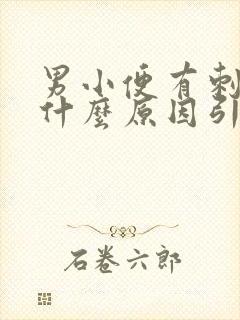 男小便有刺
什麼原因引
石卷六郎